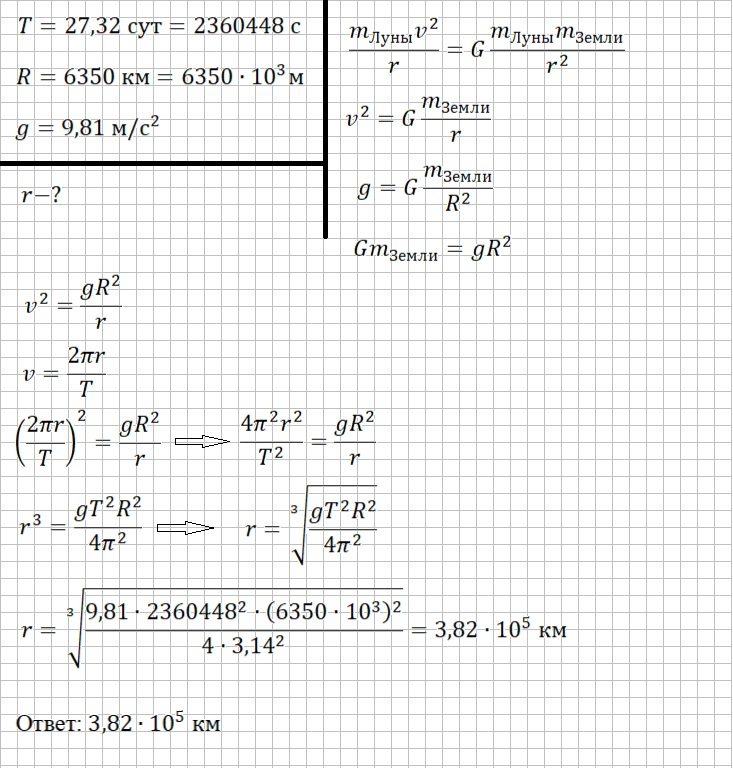 T = 27,32 сут = 2360448 с
R = 6350 км = 6350 · 10³ м
g = 9,81 м/с²
r−?
m_Луны v² / r = G m_Луны m_Земли / r²
v² = G m_Земли / r
g = G m_Земли / R²
Gm_Земли = gR²
v² = gR² / r
v = 2πr / T
(2πr / T)² = gR² / r ⇒ 4π²r² / T² = gR² / r
r³ = gT²R² / 4π² ⇒ r = ∛(gT²R² / 4π²)
r = ∛(9,81 · 2360448² · (6350 · 10³)² / 4 · 3,14²) = 3,82 · 10⁵ км
Ответ: 3,82 · 10⁵ км